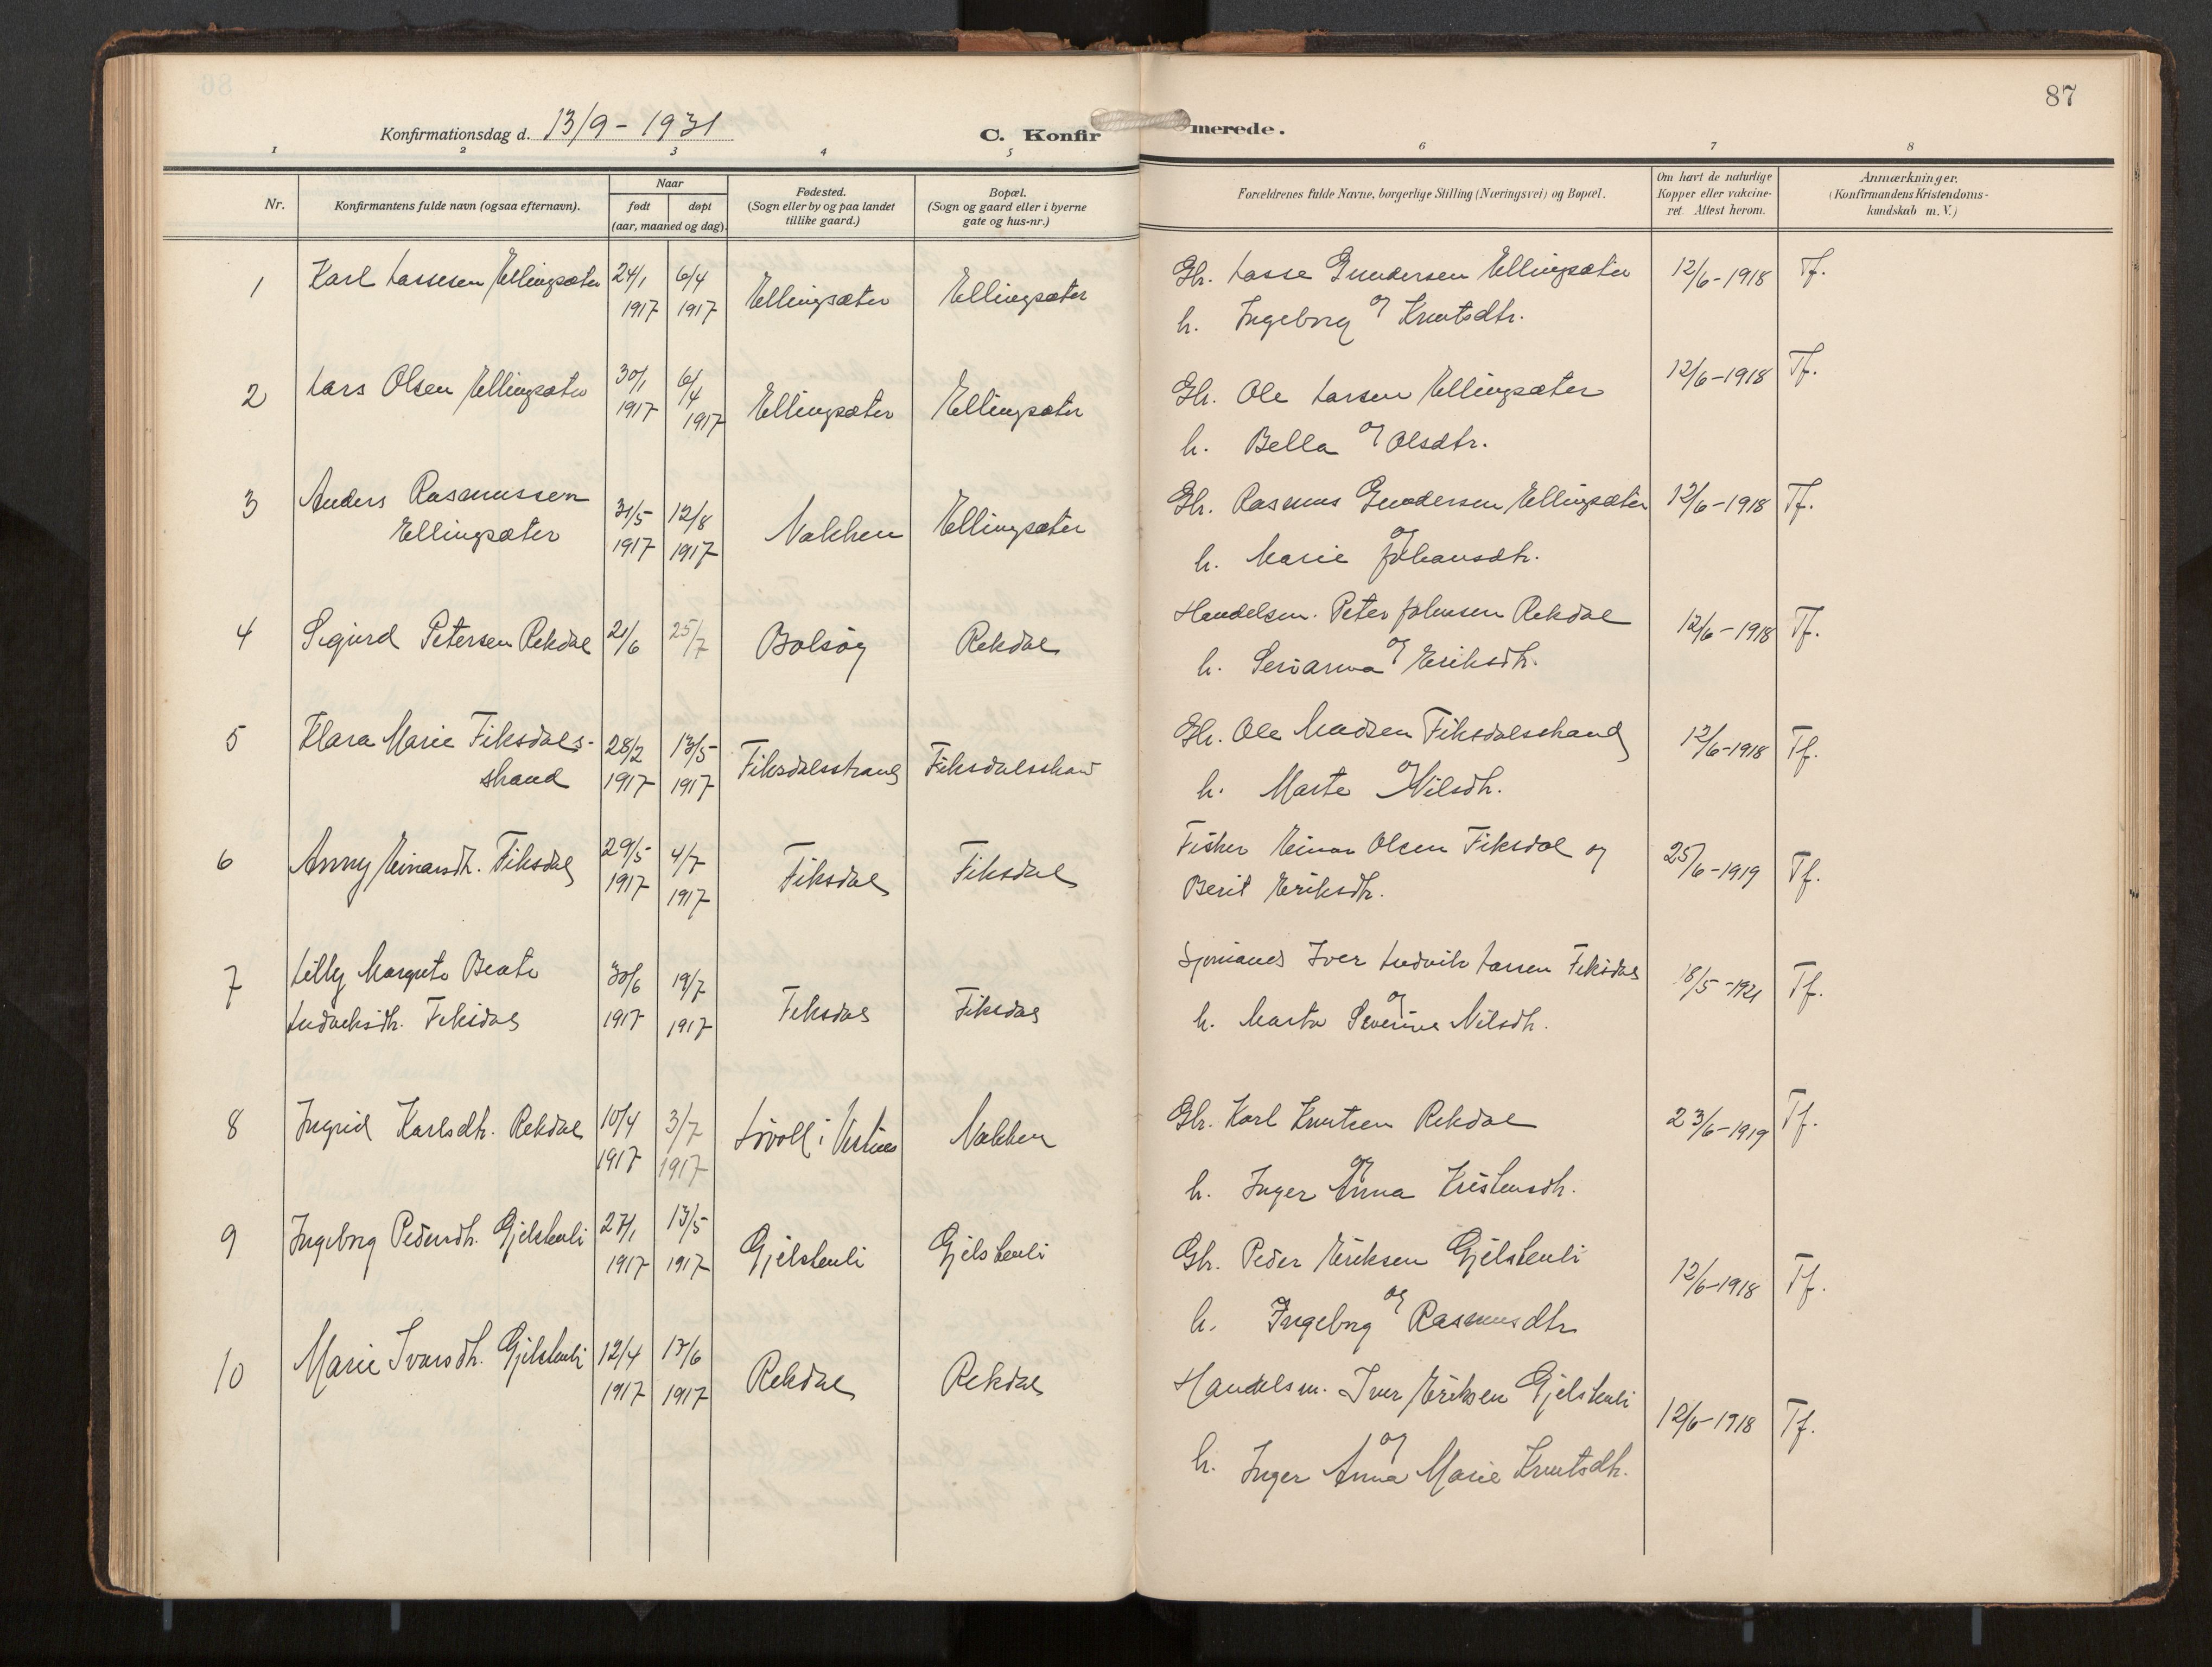 87
Konfirmationsdag d. 13/9 - 1931
C. Konfirmerede.
1 2 3 4 5 6 7 8
Nr.
Konfirmantens fulde navn (ogsaa efternavn).
Naar
født døpt
(aar, maaned og dag).
Fødested.
(Sogn eller by og paa landet
tillike gaard.)
Bopæl.
(Sogn og gaard eller i byerne
gate og hus-nr.)
Forældrenes fulde Navne, borgerlige Stilling (Næringsvei) og Bopæl.
Om havt de naturlige
Kopper eller vakcine-
ret. Attest herom.
Anmærkninger.
(Konfirmandens Kristendoms-
kundskab m. V.)
1 Karl Lassesen Ellingsæter 24/1 6/4 Ellingsæter Ellingsæter Gbr. Lasse Gundersen Ellingsæter 12/6-1918 Tf.
1917 1917 h. Ingeborg og Knutsdtr.
2 Lars Olsen Ellingsæter 30/1 6/4 Ellingsæter Ellingsæter Gbr. Ole Larsen Ellingsæter 12/6-1918 Tf.
1917 1917 h. Bella og Olsdtr.
3 Anders Rasmussen 31/5 12/8 Nakken Ellingsæter Gbr. Rasmus Gundersen Ellingsæter 12/6-1918 Tf.
Ellingsæter 1917 1917 og
h. Marie Johansdtr.
4 Sigurd Petersen Rekdal 21/6 25/7 Bolsøy Rekdal Handelsm. Peter Johnsen Rekdal 12/6-1918 Tf.
h. og Eriksdtr.
5 Klara Marie Fiksdals- 28/2 13/5 Fiksdalsstrand Fiksdalsstrand Gbr. Ole Madsen Fiksdalsstrand 12/6-1918 Tf.
strand 1917 1917 h. Marte og Nilsdtr.
6 Anny Einarsdtr. Fiksdal 29/5 4/7 Fiksdal Fiksdal Fisker Einar Olsen Fiksdal og 25/6-1919 Tf.
1917 1917 Berit Eriksdtr.
7 Lilly Margrete Beate 30/6 19/7 Fiksdal Fiksdal Sjømand Iver Ludvik Larsen Fiksdal 18/5-1921 Tf.
Ludviksdtr. Fiksdal 1917 1917 og
h. Marte Severine Nilsdtr.
8 Ingrid Karlsdtr. Rekdal 10/4 3/7 Løvoll i Vestnes Nakken Gbr. Karl Knutsen Rekdal 23/6-1919 Tf.
1917 1917 og
h. Inger Anna Kristensdtr.
9 Ingeborg Pedersdtr. Gjelstenli 27/1 13/5 Gjelstenli Gjelstenli Gbr. Peder Eriksen Gjelstenli 12/6-1918 Tf.
1917 1917 og
h. Ingeborg Rasmusdtr.
10 Marie Ivarsdtr. Gjelstenli 12/4 17/6 Rekdal Rekdal Handelsm. Iver Eriksen Gjelstenli 12/6-1918 Tf.
1917 1917 og
h. Inger Anna Marie Knutsdtr.